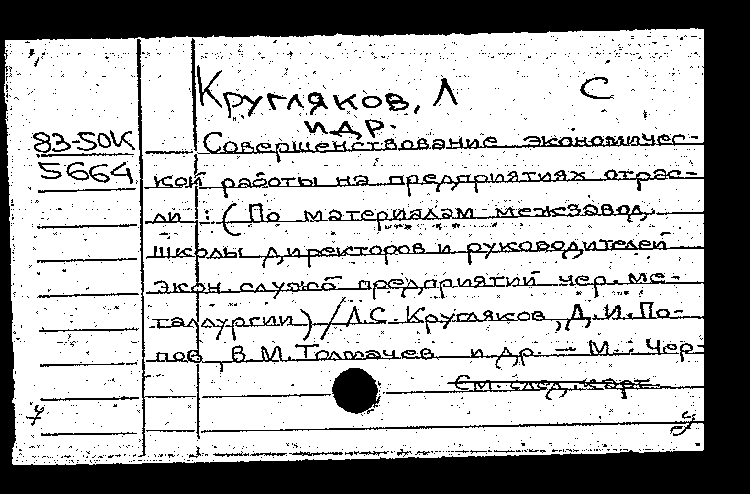 Кругляков, Л С
и др.
83-50К
5664
Совершенствование экономичес-
кой работы на предприятиях отрас-
ли : (По материалам межзавод.
школы директоров и руководителей
экон. служб предприятий чер. ме-
таллургии) / Л.С. Кругляков, Д.И. По-
пов, В.М. Толмачев и др. — М. : Чер-
См. след. карт.